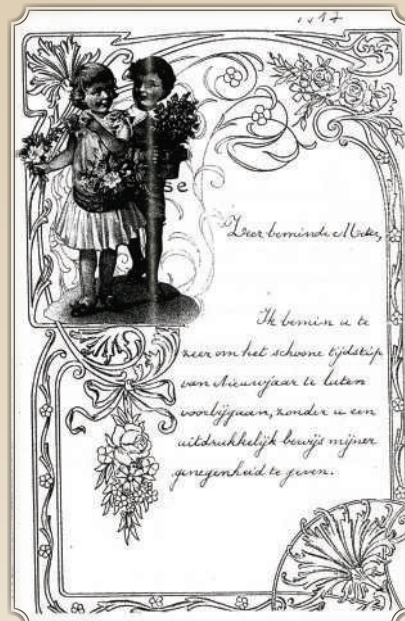 1917
se
Zeer beminde Meter,
Ik bemin u te
zeer om het schoone tijdstip
van Nieuwjaar te laten
voorbijgaan, zonder u een
uitdrukkelijk bewijs mijner
genegenheid te geven.